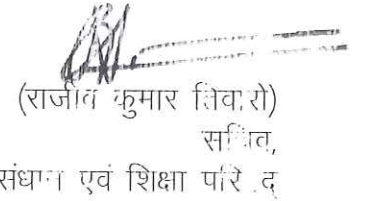 (राजीव कुमार तिवारी)
सचिव,
संधान एवं शिक्षा परिषद्